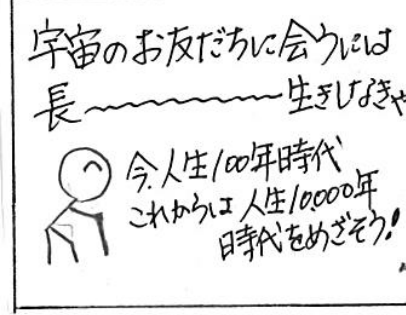 宇宙のお友だちに会うには
長〜〜〜〜〜生きしなきゃ
今、人生100年時代
これからは人生10,000年
時代をめざそう!